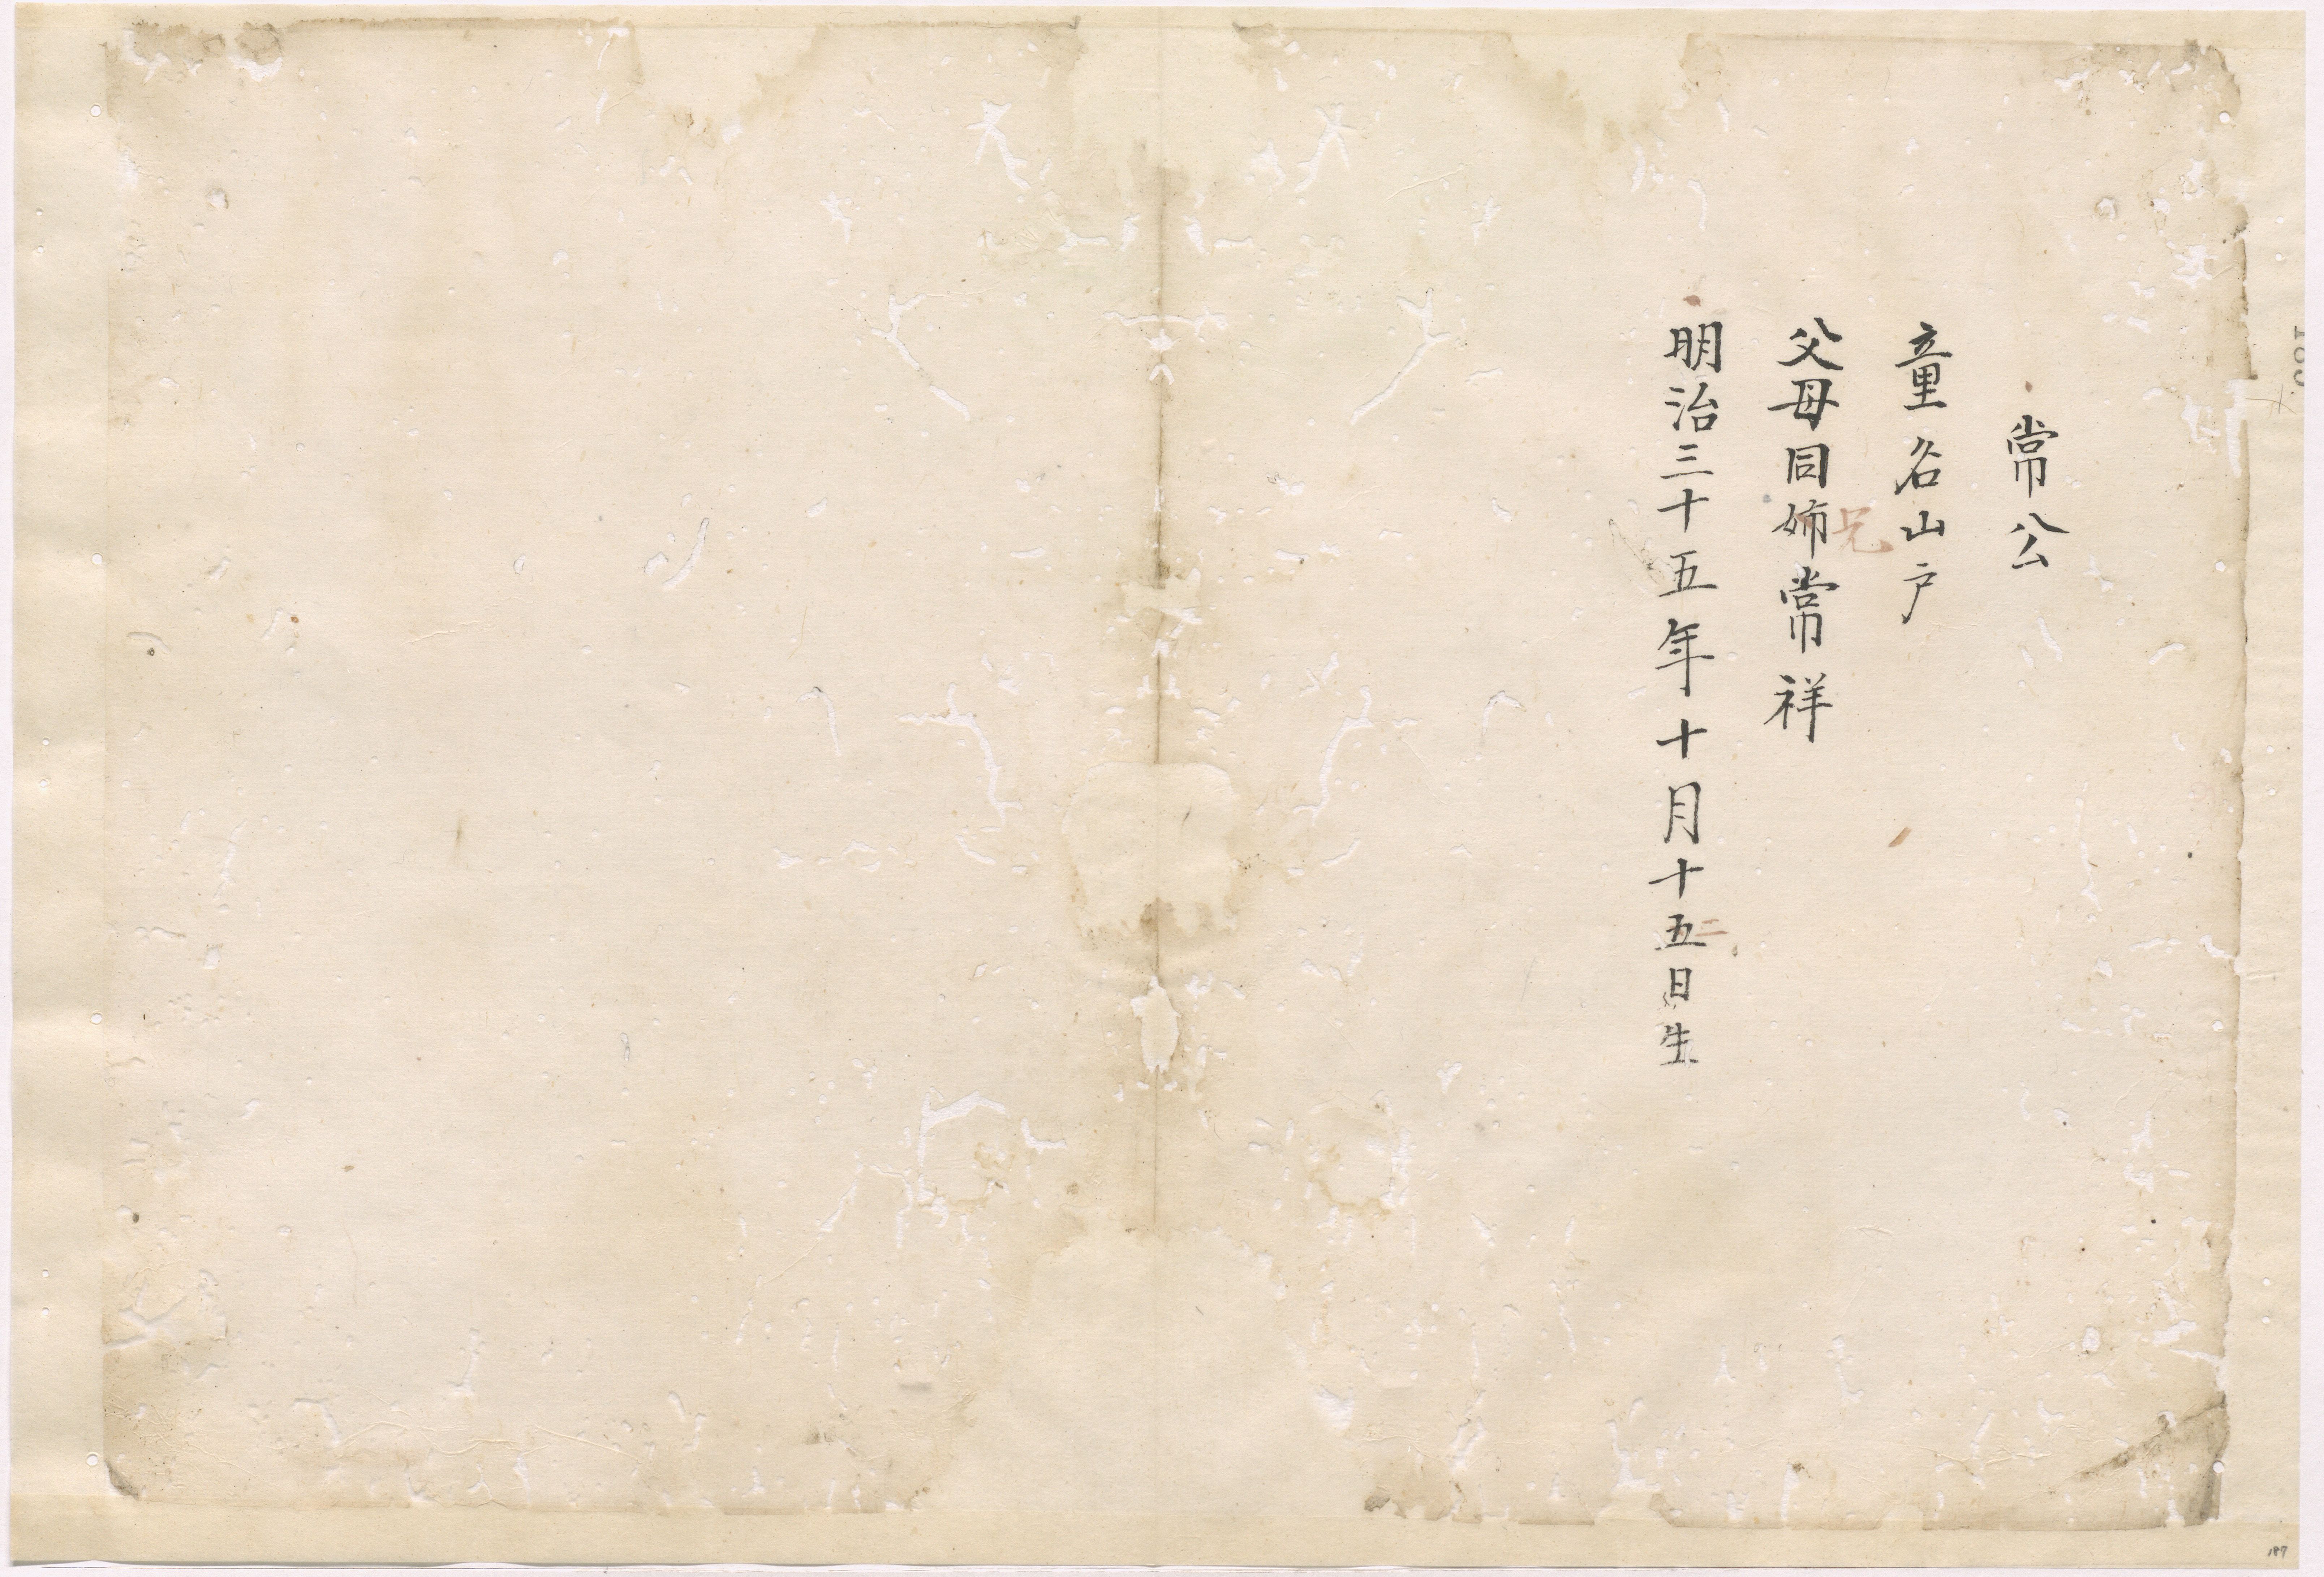 常公
童名山戸
父母同姉常祥
兄
明治三十五年十月十五日生
二
187